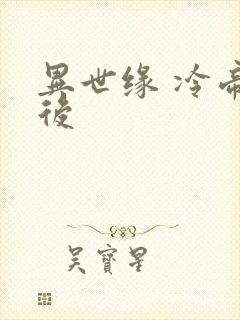 異世缘 冷帝
後
吴寶星